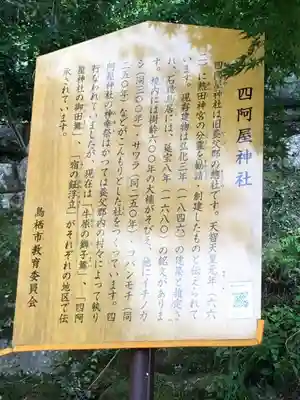 四阿屋神社
四阿屋神社は旧養父郡の總社です。天智天皇元年（六六
二）に熱田神宮の分霊を勧請・創建したものと伝えられて
います。現存建物は弘化三年（一八四六）の建築と推定さ
れ、石造鳥居には、延宝八年（一六八〇）の銘文がありま
す。境内には樹齢六〇〇年の大楠がそびえ、他にイチイガ
シ（同三〇〇年）、サワラ（同二五〇年）、コバンモチ（同
二五〇年）などがこんもりとした社をつくっています。四
阿屋神社の神幸祭はかつては養父郡内の村々によって執り
行なわれていましたが、現在は「牛原の獅子舞」、「四阿
屋神社の御田舞」、「宿の鉦浮立」がそれぞれの地区で伝
承されています。
鳥栖市教育委員会